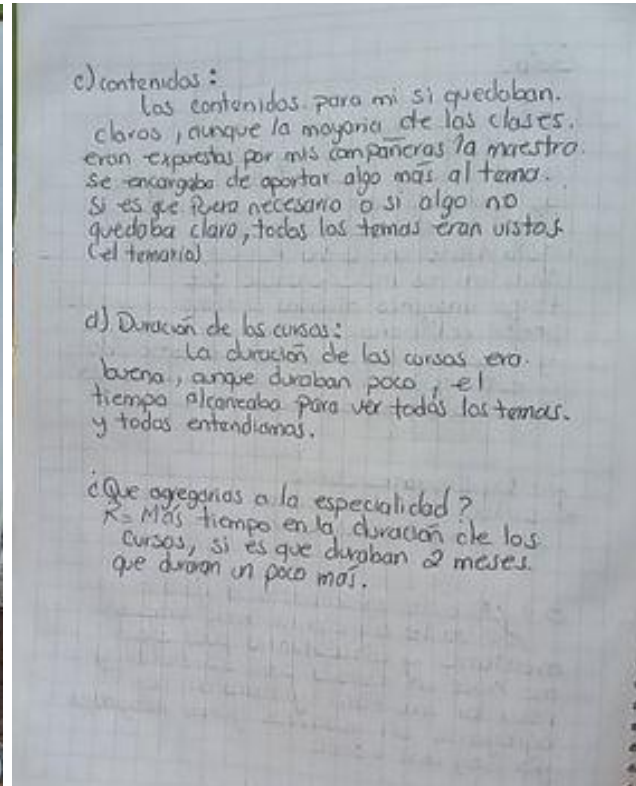 c) contenidos:
Los contenidos para mi si quedaban.
claros, aunque la mayoria de las clases.
eran expuestas por mis compañeras la maestra.
se encargaba de aportar algo más al tema.
Si es que fuera necesario o si algo no
quedaba claro, todos los temas eran vistos
(el temario)
d) Duración de los cursos:
La duración de los cursos era.
buena, aunque duraban poco, el
tiempo alcanzaba para ver todos los temas.
y todas entendiamos.
¿Que agregarias a la especialidad?
R= Más tiempo en la duración de los
cursos, si es que duraban 2 meses.
que duraran un poco más.